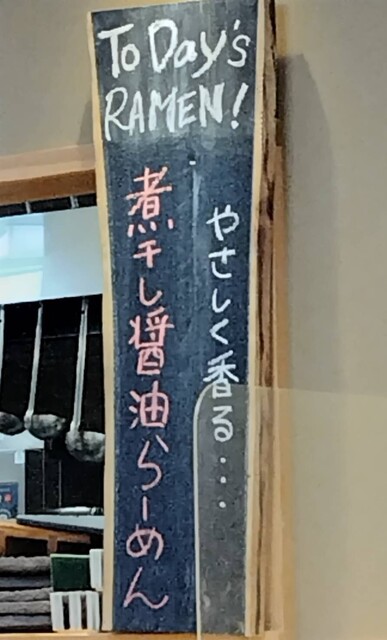 ToDay's
RAMEN!
やさしく香る...
煮干し醤油らーめん